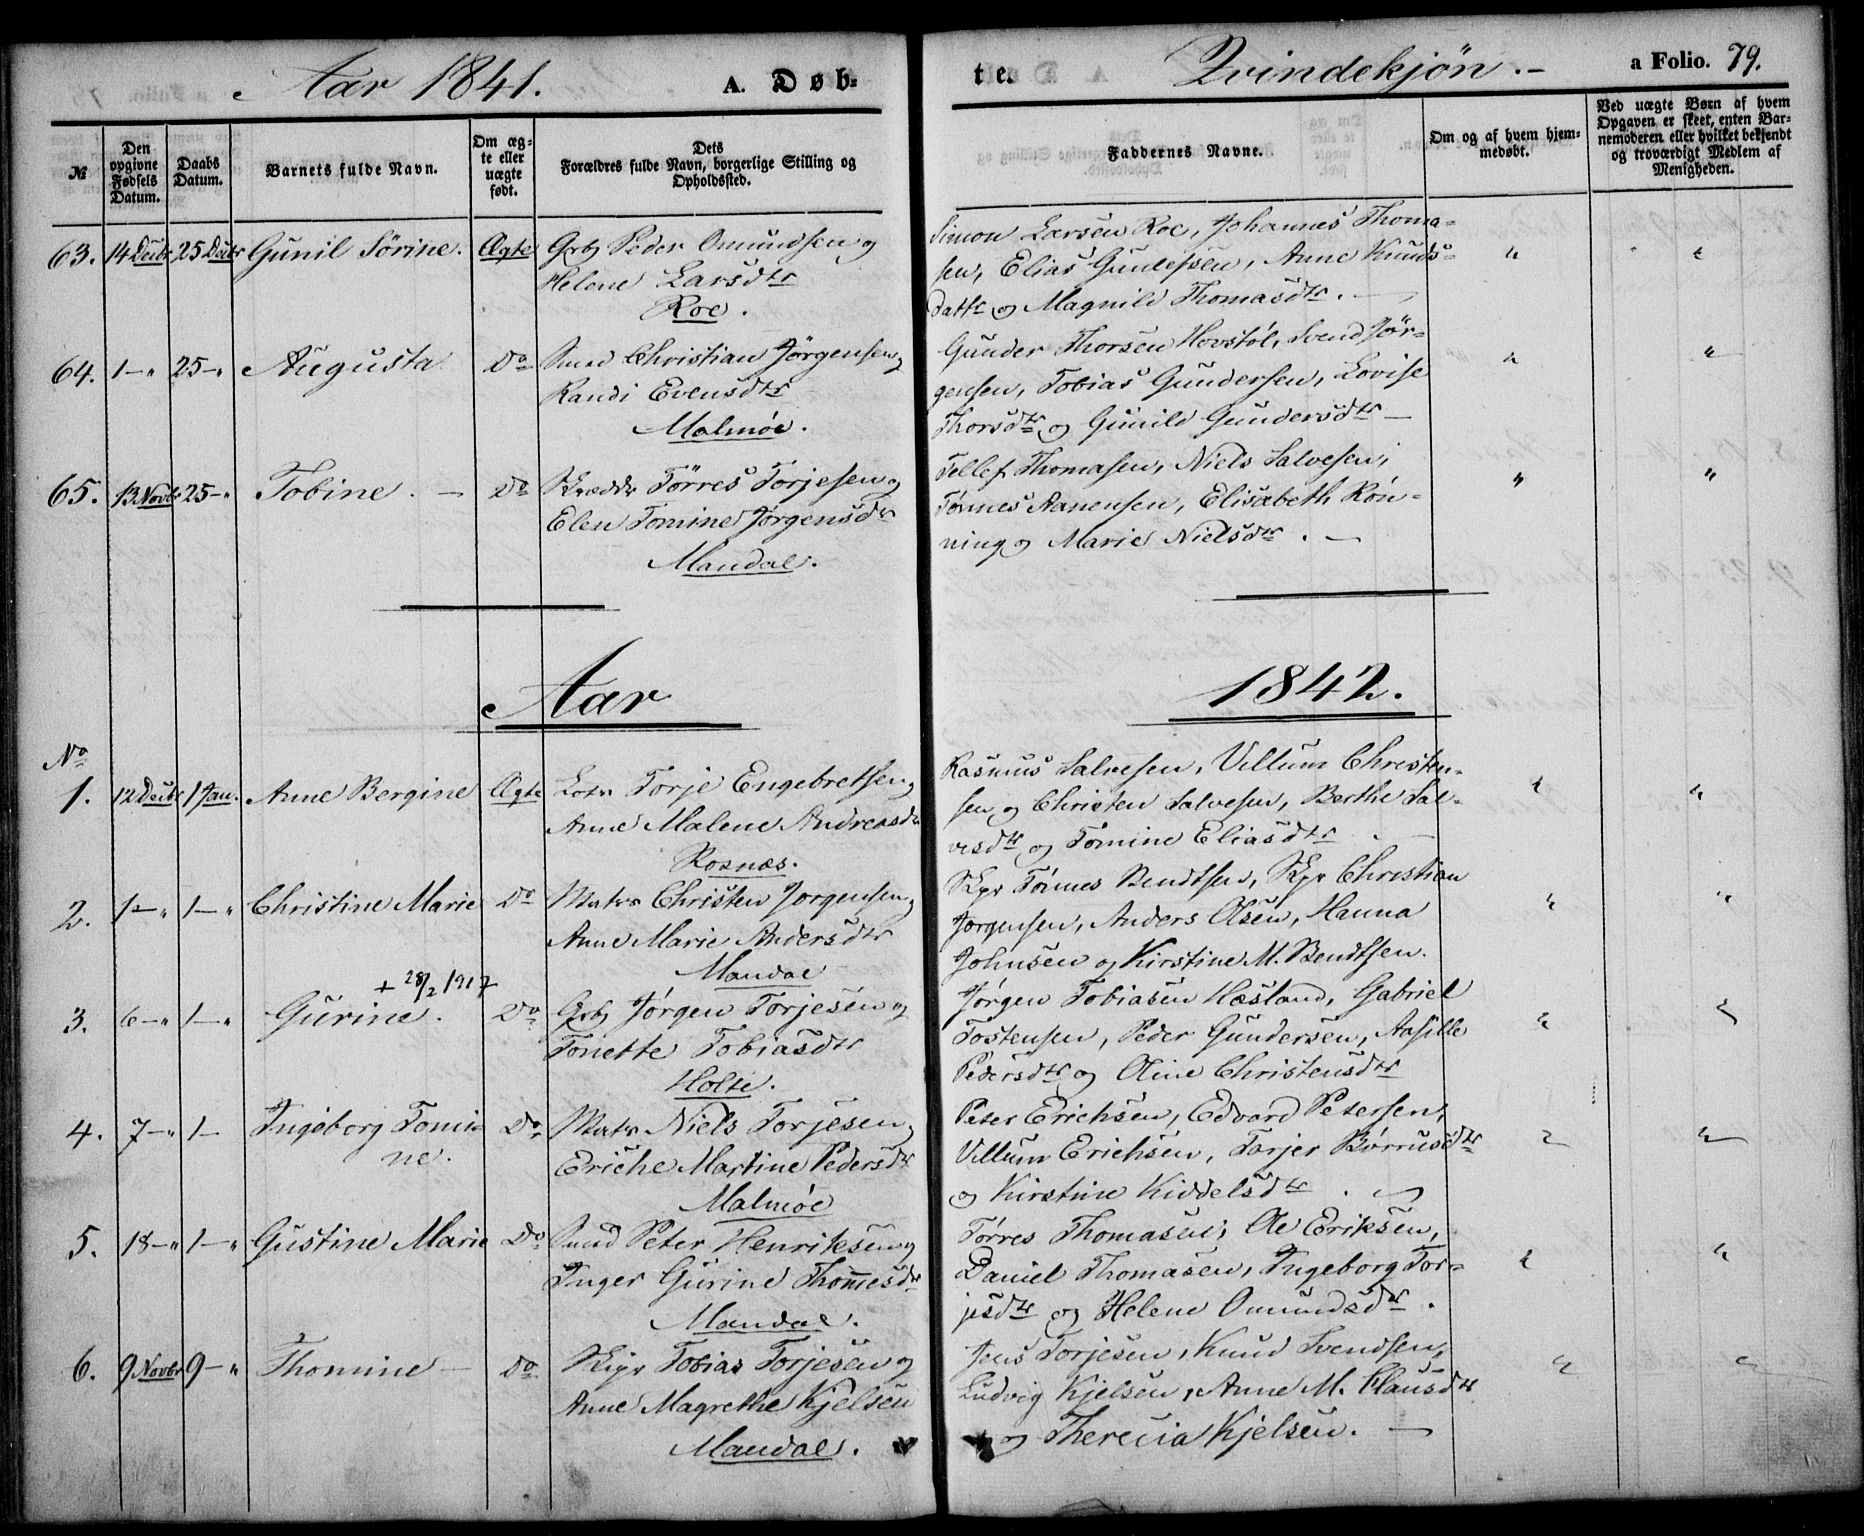 Aar 1841. A. Døb= te. Qvindekjön.– a Folio. 79.
№
Den opgivne Fødsels Datum.
Daabs Datum.
Barnets fulde Navn.
Om ægte eller uægte født.
Dets Forældres fulde Navn, borgerlige Stilling og Opholdssted.
Faddernes Navne.
Om og af hvem hjemmedøbt.
Ved uægte Børn af hvem Opgaven er skeet, enten Barnemoderen eller hvilket bekjendt og troværdigt Medlem af Menigheden.
63. 14 Decbr 25 Decbr Gunil Sörine. Ægte Grbs Peder Omundsen og
Helene Larsdtr
Roe.
Simon Larsen Roe, Johannes Thoma-
sen, Elias Gundersen, Anne Knuds-
datr og Magnild Thomasdtr.
64. 1 – " 25 – " Augusta Do Smed Christian Jörgensen og
Randi Evensdtr
Malmöe.
Gunder Thorsen Hovstöl, Svend Jör-
gensen, Tobias Gundersen, Lovise
Thorsdtr og Gunild Gundersdtr –
65. 13 Novbr 25 – " Tobine. – Do Skrædder Törres Torjesen og
Elen Tomine Jörgensdtr
Mandal.
Tellef Thomasen, Niels Salvesen,
Tönnes Aanensen, Elisabeth Rön-
ning og Marie Nielsdtr. –
Aar 1842.
No
1. 12 Decbr 1 Jan. Anne Bergine Ægte Lots Torje Engebretsen og
Anne Malene Andreasdtr
Rosnæs.
Rasmus Salvesen, Villum Christen-
sen og Christen Salvesen, Berthe Sal-
vesdtr og Tomine Eliasdtr –
2. 1 – " 1 – " Christine Marie Do Matrs Christen Jörgensen og
Anne Marie Andersdtr
Mandal
Skpr Tönnes Bendtsen, Skpr Christian
Jörgensen, Anders Olsen, Hanna
Johnsen og Kirstine M. Bendtsen.
+ 28/2 1917
3. 6 – " 1 – " Gurine. Do Grbs Jörgen Torjesen og
Tonette Tobiasdtr
Holte.
Jörgen Tobiasen Hæsland, Gabriel
Tostensen, Peder Gundersen, Aasille
Pedersdtr og Oline Christensdtr
4. 7 – " 1 – Ingeborg Tomi-
ne. Do Matrs Niels Torjesen og
Eriche Martine Pedersdtr
Malmöe
Peter Erichsen, Edvard Petersen,
Villum Erichsen, Tarjer Börrusdtr
og Kirstine Kiddelsdtr. –
5. 18 – " 1 – " Gustine Marie Do Smed Peter Henriksen og
Inger Gurine Thommesdtr
Mandal.
Törres Thomasen, Ole Eriksen,
Daniel Thomasen, Ingeborg Tor-
jesdtr og Helene Omundsdtr.
6. 9 Novbr 9 – " Thomine – Do Skipr Tobias Torjesen og
Anne Magrethe Kjelsen
Mandal.
Jens Torjesen, Knud Svendsen,
Ludvig Kjelsen, Anne M. Clausdtr
og Therecia Kjelsen. –